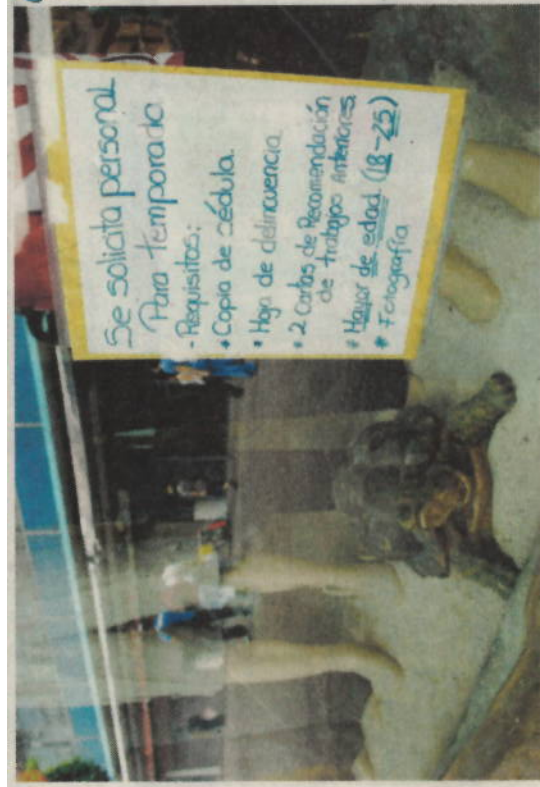 Se solicita personal
Para temporada
- Requisitos:
• Copia de sédula.
• Hoja de delincuencia
• 2 Cartas de Recomendación
de trabajos Anteriores
* Mayor de edad (18-25)
* Fotografía